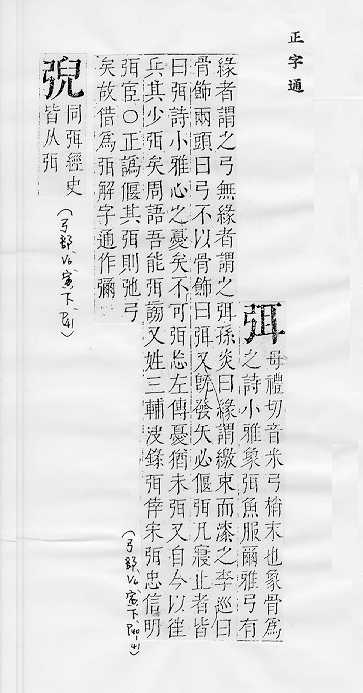 正字通
弭 母禮切音米弓梢末也象骨爲
之詩小雅象弭魚服爾雅弓有
緣者謂之弓無緣者謂之弭孫炎曰緣謂繳束而漆之李巡曰
骨飾兩頭曰弓不以骨飾曰弭又旣發矢必偃弭凡寢止者皆
曰弭詩小雅心之憂矣不可弭忘左傳憂猶未弭又自今以往
兵其少弭矣周語吾能弭謗又姓三輔決錄弭倖宋弭忠信明
弭宦○正譌偃其弭則弛弓
矣故借爲弭解字通作彌
(弓部 寅下)
𢏺 同弭經史
皆从弭
(弓部 寅下)